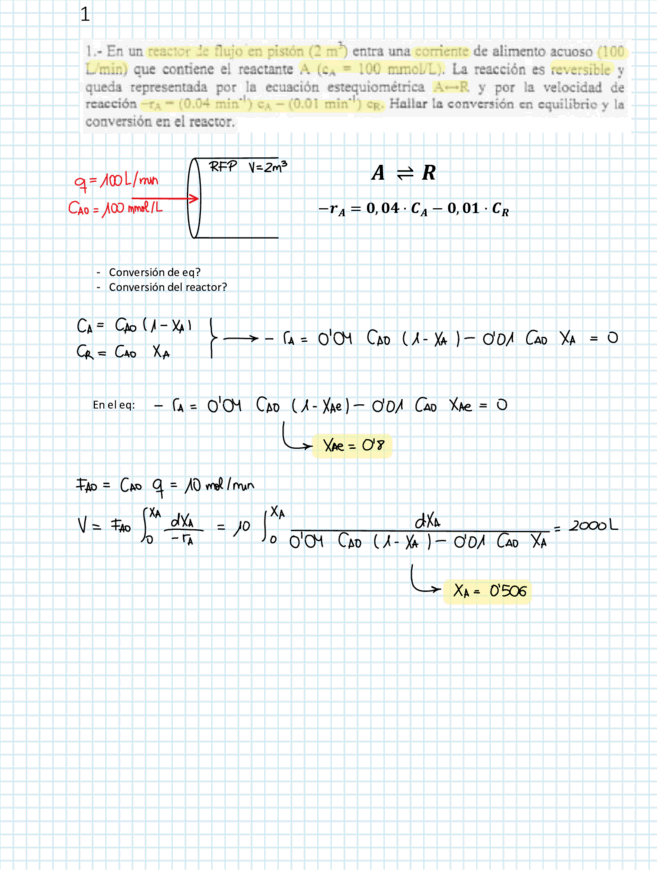 1
1.- En un reactor de flujo en pistón (2 m³) entra una corriente de alimento acuoso (100
L/min) que contiene el reactante A (c_A = 100 mmol/L). La reacción es reversible y
queda representada por la ecuación estequiométrica A↔R y por la velocidad de
reacción -r_A = (0.04 min⁻¹) c_A – (0.01 min⁻¹) c_R. Hallar la conversión en equilibrio y la
conversión en el reactor.
RFP V=2m³
q = 100 L/min
C_A0 = 100 mmol/L
A ⇌ R
−r_A = 0,04 · C_A − 0,01 · C_R
- Conversión de eq?
- Conversión del reactor?
C_A = C_A0 (1 - X_A)
C_R = C_A0 X_A
} → - r_A = 0'04 C_A0 (1 - X_A) - 0'01 C_A0 X_A = 0
En el eq: - r_A = 0'04 C_A0 (1 - X_Ae) - 0'01 C_A0 X_Ae = 0
X_Ae = 0'8
F_A0 = C_A0 q = 10 mol/min
V = F_A0 ∫_0^X_A dX_A / -r_A = 10 ∫_0^X_A dX_A / 0'04 C_A0 (1 - X_A) - 0'01 C_A0 X_A = 2000 L
X_A = 0'506